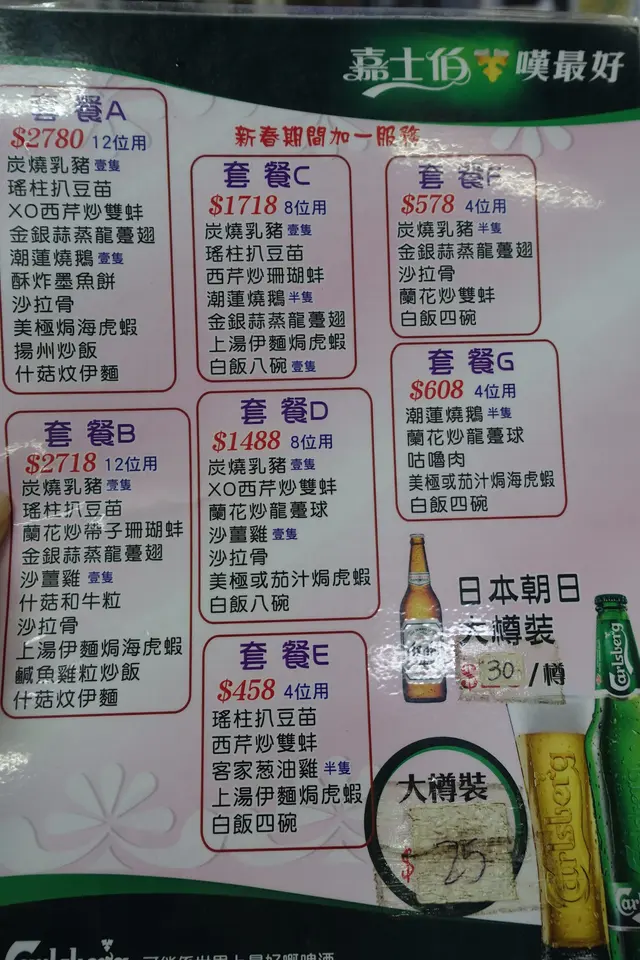 嘉士伯 嘆最好
新春期間加一服務
套餐A
$2780 12位用
炭燒乳豬 壹隻
瑤柱扒豆苗
XO西芹炒雙蚌
金銀蒜蒸龍躉翅
潮蓮燒鵝 壹隻
酥炸墨魚餅
沙拉骨
美極焗海虎蝦
揚州炒飯
什菇炆伊麵
套餐B
$2718 12位用
炭燒乳豬 壹隻
瑤柱扒豆苗
蘭花炒帶子珊瑚蚌
金銀蒜蒸龍躉翅
沙薑雞 壹隻
什菇和牛粒
沙拉骨
上湯伊麵焗海虎蝦
鹹魚雞粒炒飯
什菇炆伊麵
套餐C
$1718 8位用
炭燒乳豬 壹隻
瑤柱扒豆苗
西芹炒珊瑚蚌
潮蓮燒鵝 半隻
金銀蒜蒸龍躉翅
上湯伊麵焗虎蝦
白飯八碗 壹隻
套餐D
$1488 8位用
炭燒乳豬 壹隻
XO西芹炒雙蚌
蘭花炒龍躉球
沙薑雞 壹隻
沙拉骨
美極或茄汁焗虎蝦
白飯八碗
套餐E
$458 4位用
瑤柱扒豆苗
西芹炒雙蚌
客家葱油雞 半隻
上湯伊麵焗虎蝦
白飯四碗
套餐F
$578 4位用
炭燒乳豬 半隻
金銀蒜蒸龍躉翅
沙拉骨
蘭花炒雙蚌
白飯四碗
套餐G
$608 4位用
潮蓮燒鵝 半隻
蘭花炒龍躉球
咕嚕肉
美極或茄汁焗海虎蝦
白飯四碗
日本朝日
大樽裝
$30/樽
大樽裝
$25
Carlsberg
Carlsberg
Carlsberg 可能係世界上最好嘅啤酒